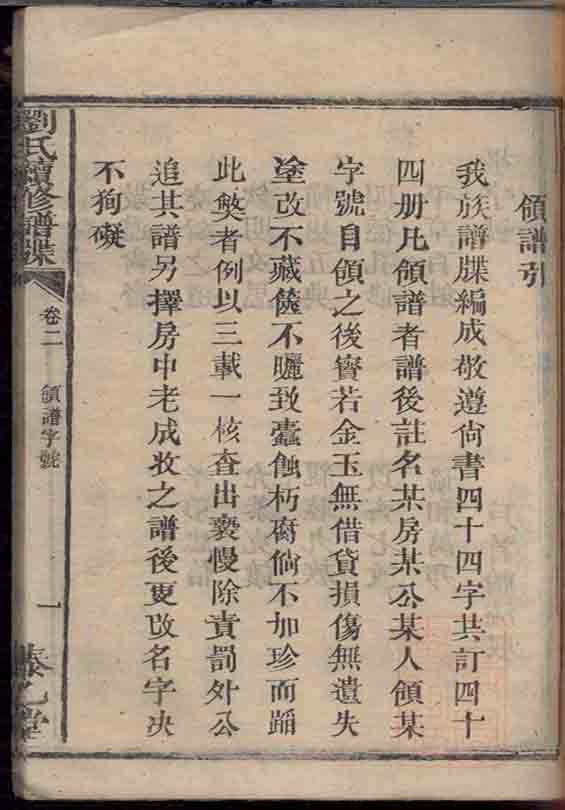 領譜引
我族譜牒編成敬遵尙書四十四字共訂四十
四册凡領譜者譜後註名某房某公某人領某
字號自領之後寳若金玉無借貸損傷無遺失
塗改不藏篋不曬致蠹蝕朽腐倘不加珍而蹈
此獘者例以三載一核查出褻慢除責罰外公
追其譜另擇房中老成收之譜後更改名字决
不狥礙
劉氏續修譜牒
卷二
領譜字號
一